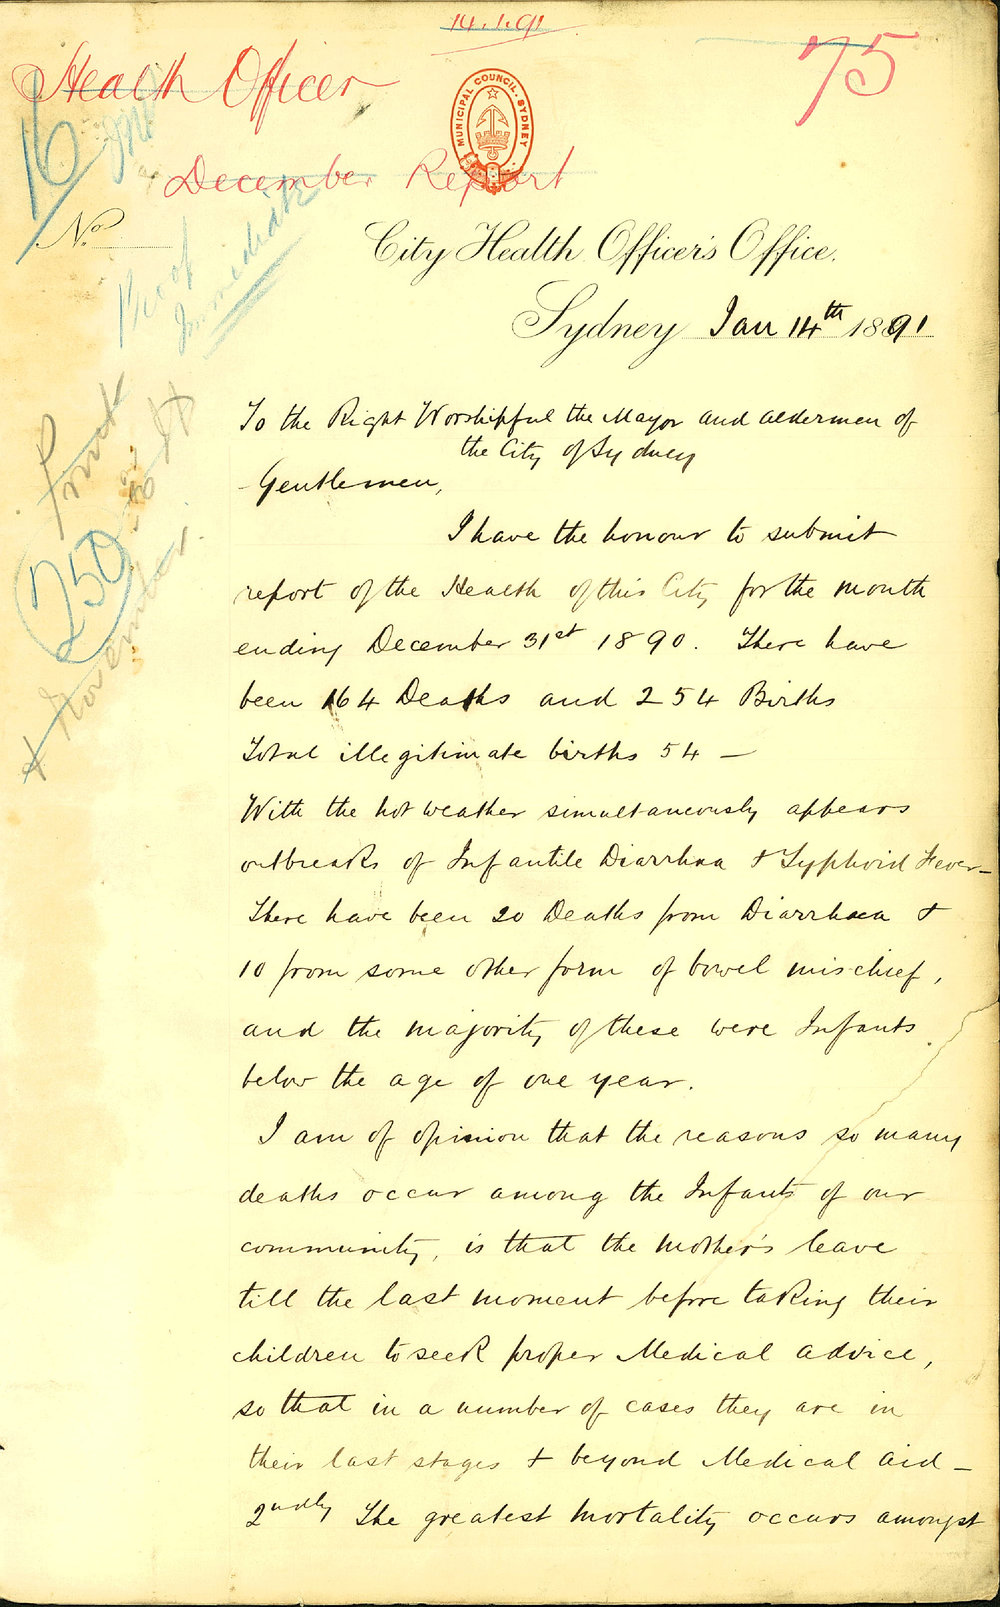 14.1.91
75
Health Officer
MUNICIPAL COUNCIL. SYDNEY
December Report
16
No.
City Health Officer's Office.
Immediate
Sydney Jan 14th 1891
To the Right Worshipful the Mayor and Aldermen of
the City of Sydney
Gentlemen,
I have the honour to submit
report of the Health of this City for the month
ending December 31st 1890. There have
been 164 Deaths and 254 Births
Total illegitimate births 54 —
With the hot weather simultaneously appears
outbreaks of Infantile Diarrhaa & Typhoid Fever—
There have been 20 Deaths from Diarrhaea &
10 from some other form of bowel mischief,
and the majority of these were Infants
below the age of one year.
I am of opinion that the reasons so many
deaths occur among the Infants of our
community, is that the mother's leave
till the last moment before taking their
children to seek proper Medical advice,
so that in a number of cases they are in
their last stages & beyond Medical aid —
2ndly The greatest mortality occurs amongst
Print
250
& November